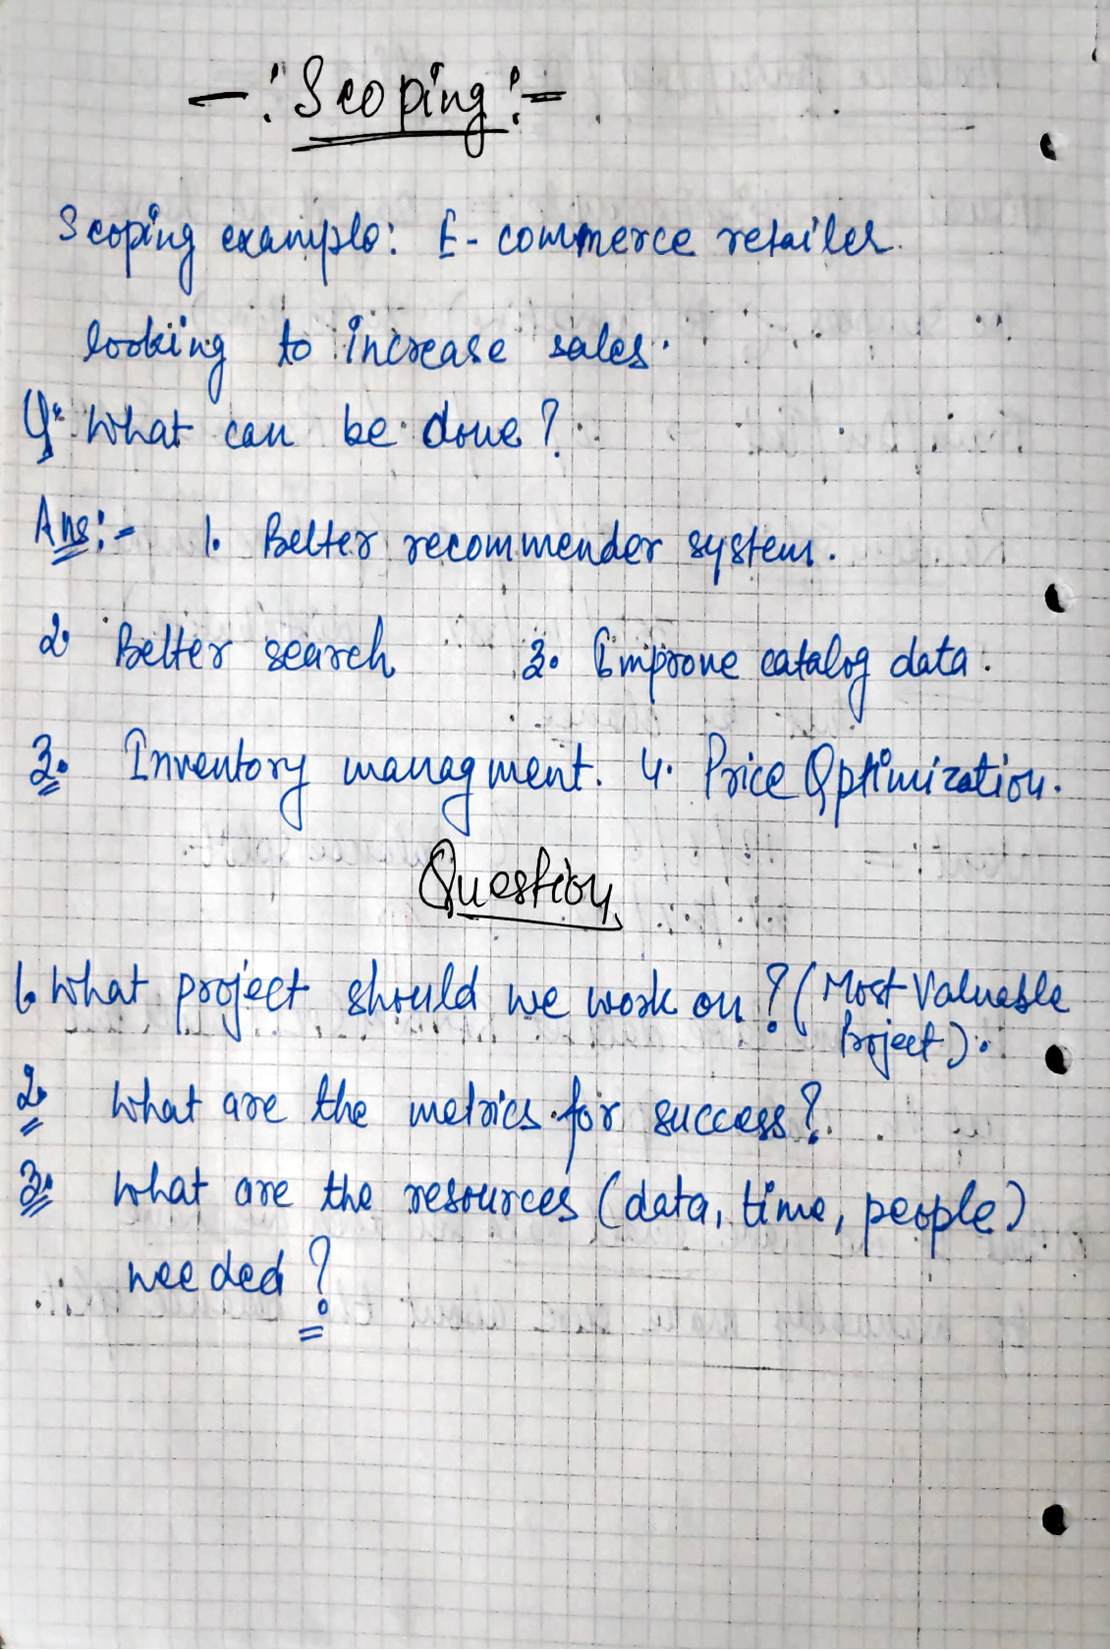 -: Scoping :-
Scoping example: E-commerce retailer
looking to increase sales.
Q: What can be done?
Ans:- 1. Better recommender system.
2. Better search 3. Improve catalog data.
3. Inventory managment. 4. Price Optimization.
Question
1. What project should we work on? (Most Valuable
Project).
2. What are the metrics for success?
3. What are the resources (data, time, people)
needed?